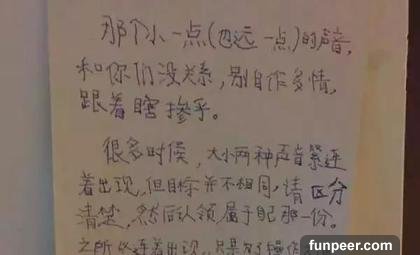 那个小一点(也远一点)的声音,
和你们没关系,别自作多情,
跟着瞎掺乎。
很多时候,大小两种声音紧连
着出现,但目标并不相同,请区分
清楚,然后认领属于自己那一份。
之所以连着出现,只是为了操作
funpeer.com